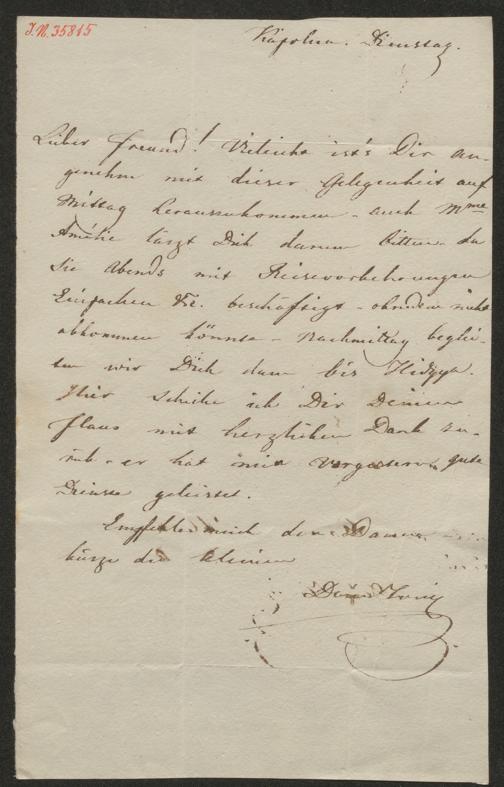 I.N. 35815
Kápolna. Dienstag.
Lieber Freund! Vieleicht ist's Dir an-
genehm mit dieser Gelegenheit auf
Mittag herauszukommen - auch Mme
Amélie lässt Dich darum bitten da
sie Abends mit Reisevorbehrungen
Einpacken &c. beschäftigt - ohndem nicht
abkommen könnte - Nachmittag beglei-
ten wir Dich dann bis
Hier schicke ich Dir Deinen
Flaus mit herzlichen Dank zu-
rück - er hat mir vorgestern gute
Dienste geleistet.
Empfehle mich den Damen
küsse die Kleinen
Dein